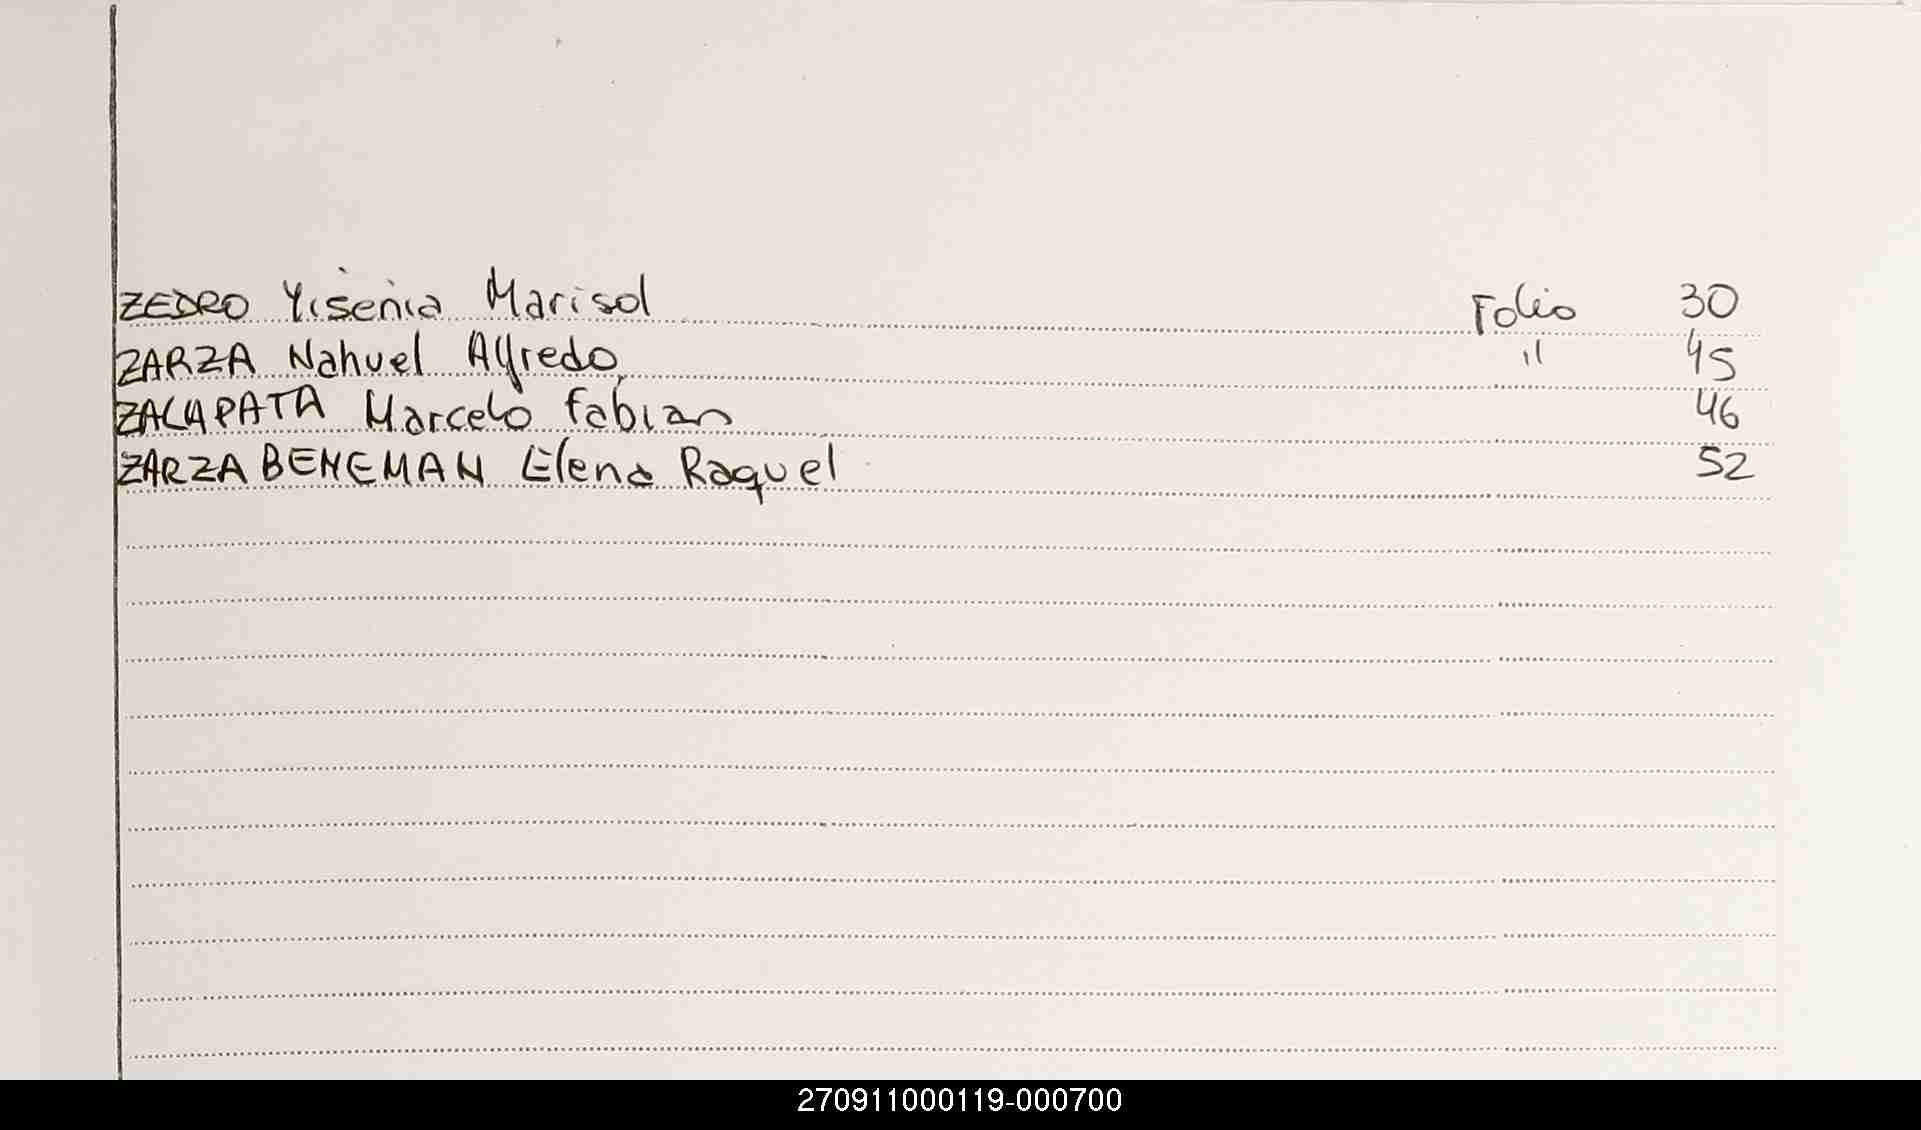 ZEDRO Yisenia Marisol Folio 30
ZARZA Nahuel Alfredo " 45
ZALAPATA Marcelo Fabian 46
ZARZA BENEMAN Elena Raquel 52
270911000119-000700